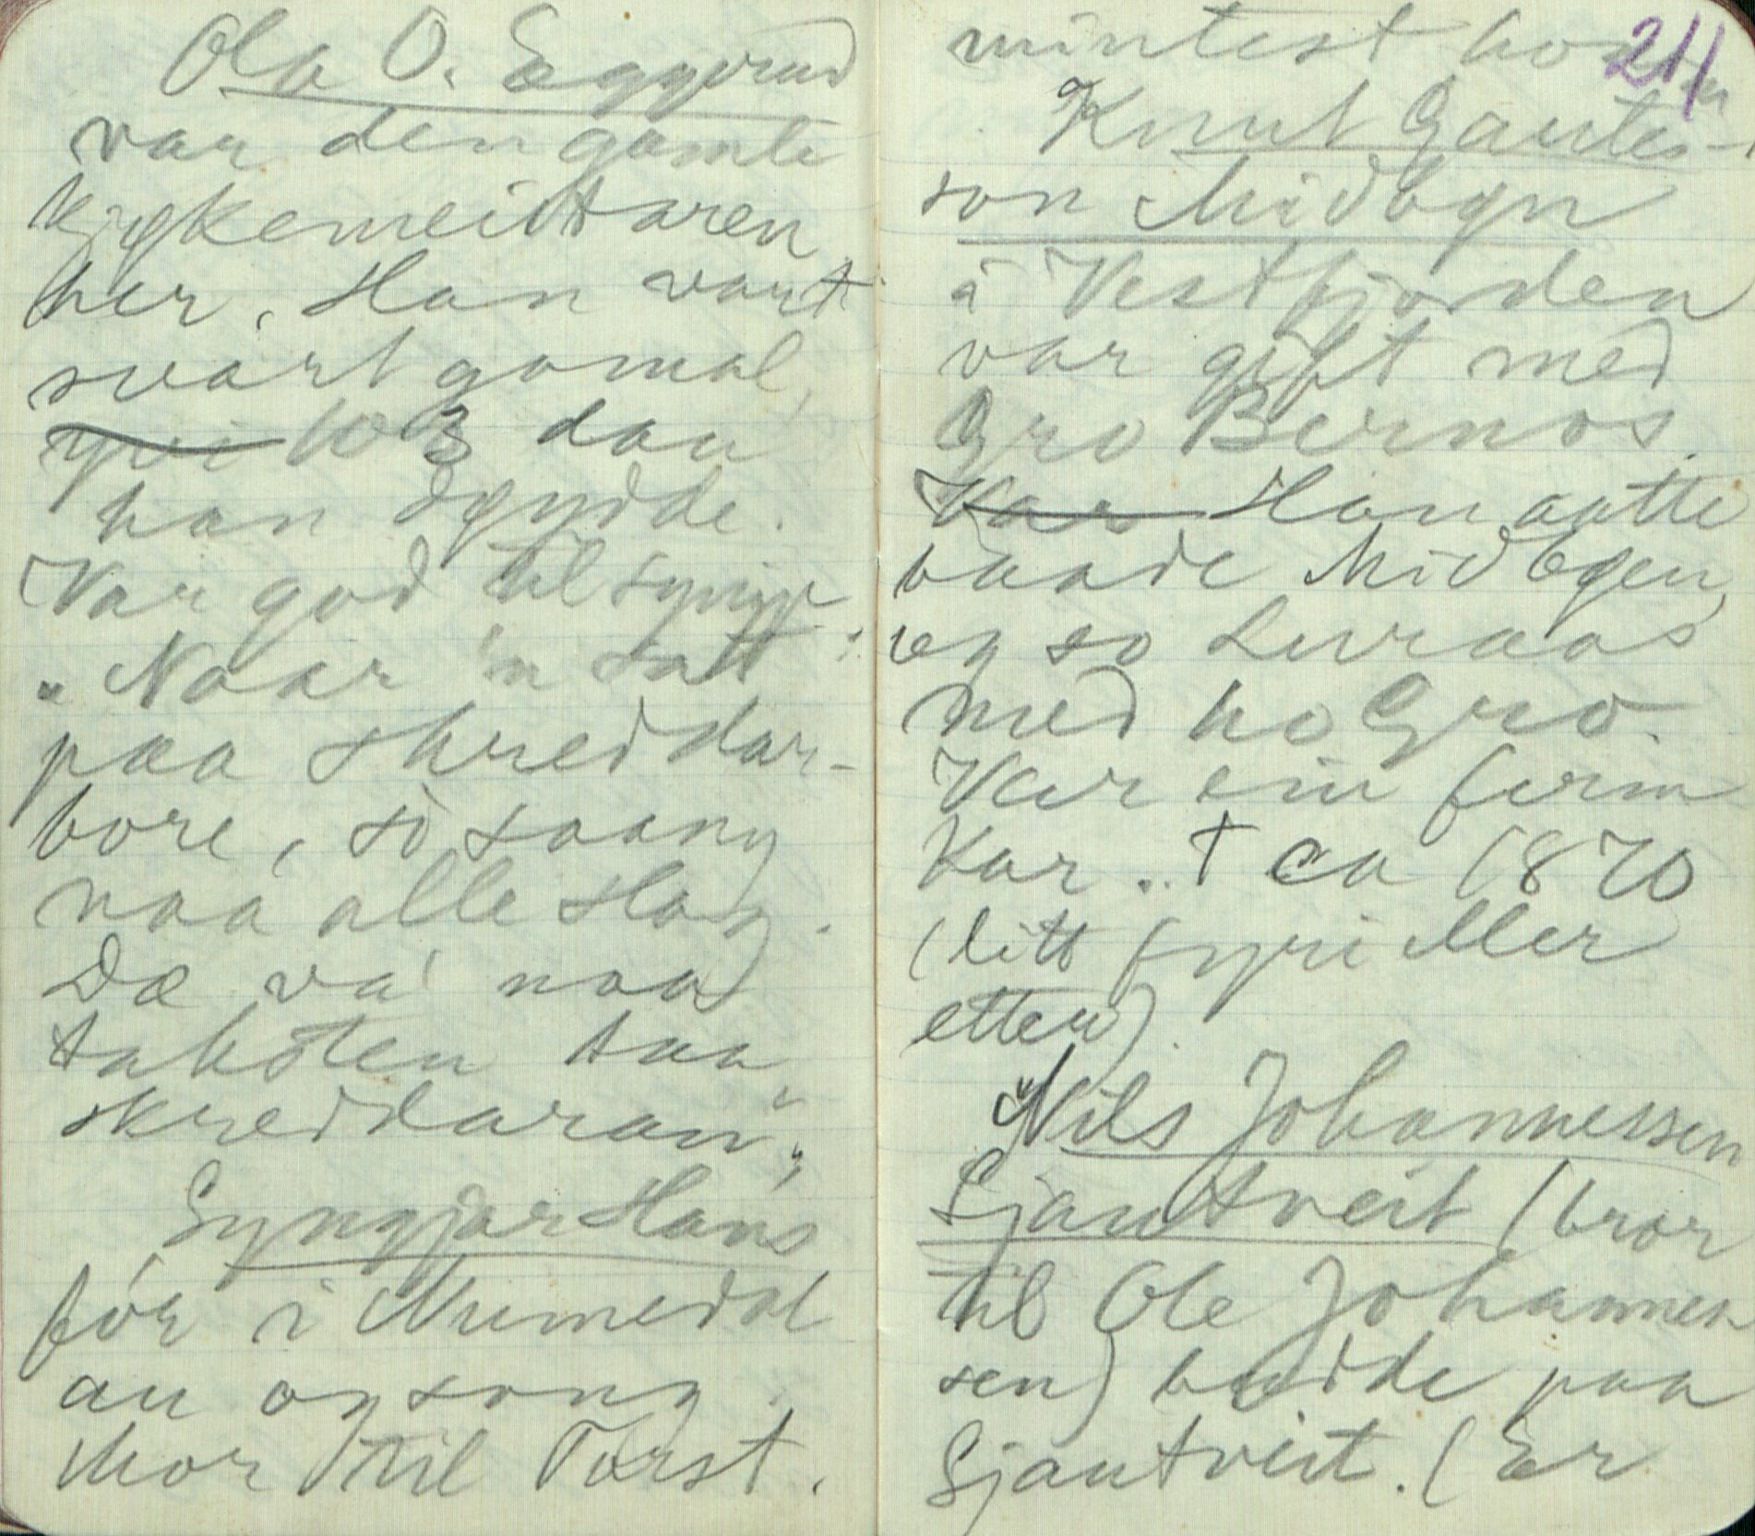 Ola O. Eggerud
var den gamle
kyrkemeistaren
her. Han vart
svært gamal,
yvi 103 dau
han døydde.
Var god til syngje.
"Naar 'n satt
paa skreddar-
bore, so saang
naa' alle slag.
Dæ va' naa
taksten taa
skreddaran".
Syngjar Hans
fór i Numedal
au og song.
Mor til Torst.
mintest honom
211
Knut Gautes-
son Midbøen
i Vestfjorden
var gift med
Gro Bernos.
Var Han aatte
baade Midbøen,
og so Luraas
med ho Gro.
Var ein ferm
Kar. † ca 1870
(litt fyri eller
etter).
Nils Johannessen
Sjautveit (bror
til Ole Johannes
sen) budde paa
Sjautveit. (Er